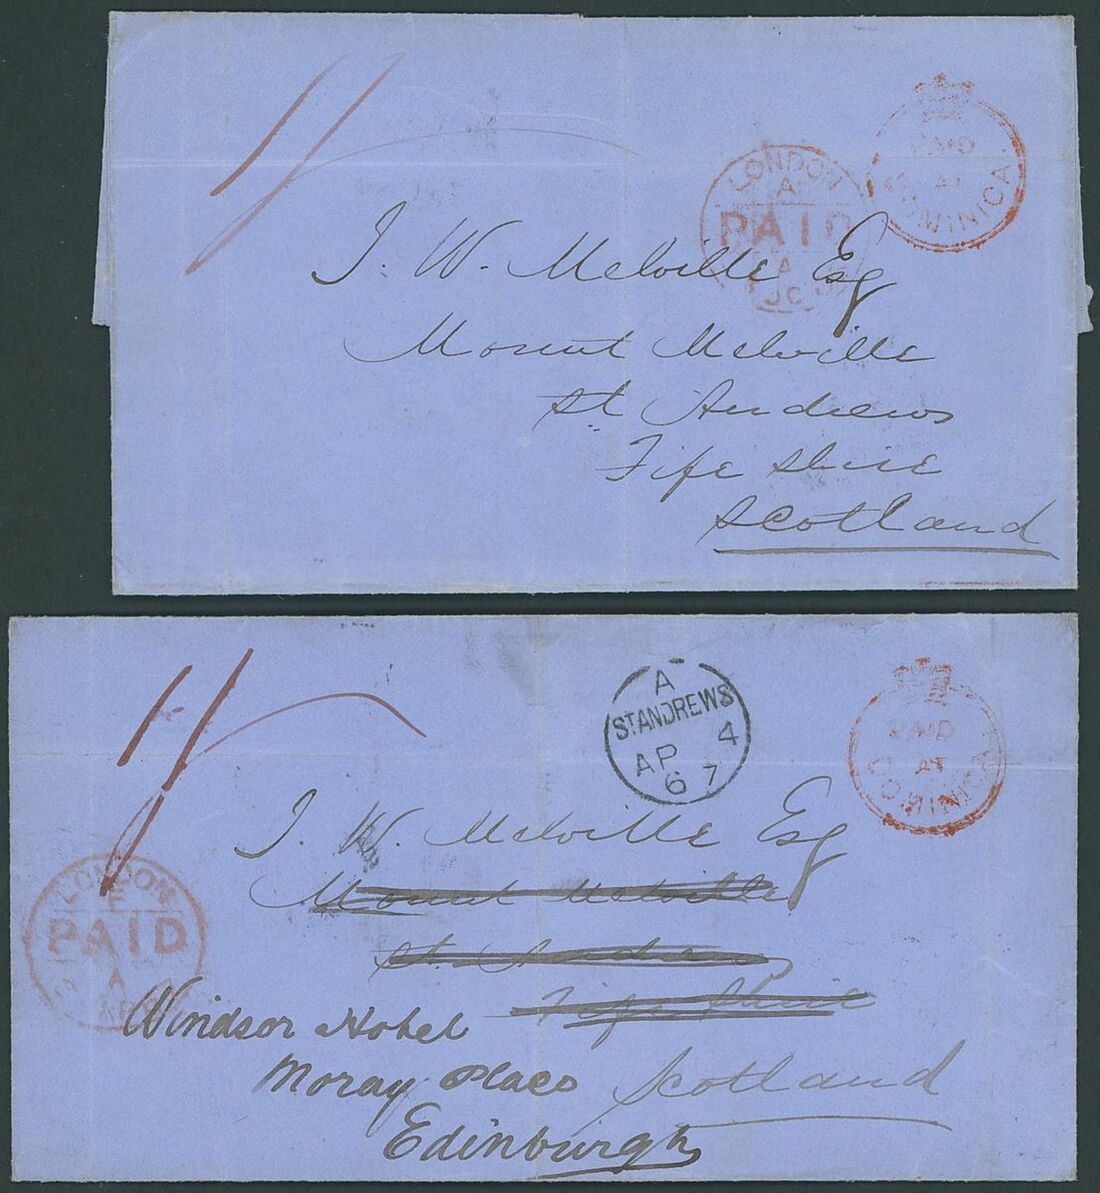 1/
PAID
AT
DOMINICA.
LONDON
A
PAID
A
J. W. Melville Esq
Mount Melville
St. Andrews
Fife shire
Scotland
1/
A
ST ANDREWS
AP 4
6 7
PAID
AT
DOMINICA.
J. W. Melville Esq
Mount Melville
St. Andrews
Fife Shire
LONDON
E
PAID
A
Windsor Hotel
Moray Place Scotland
Edinburgh